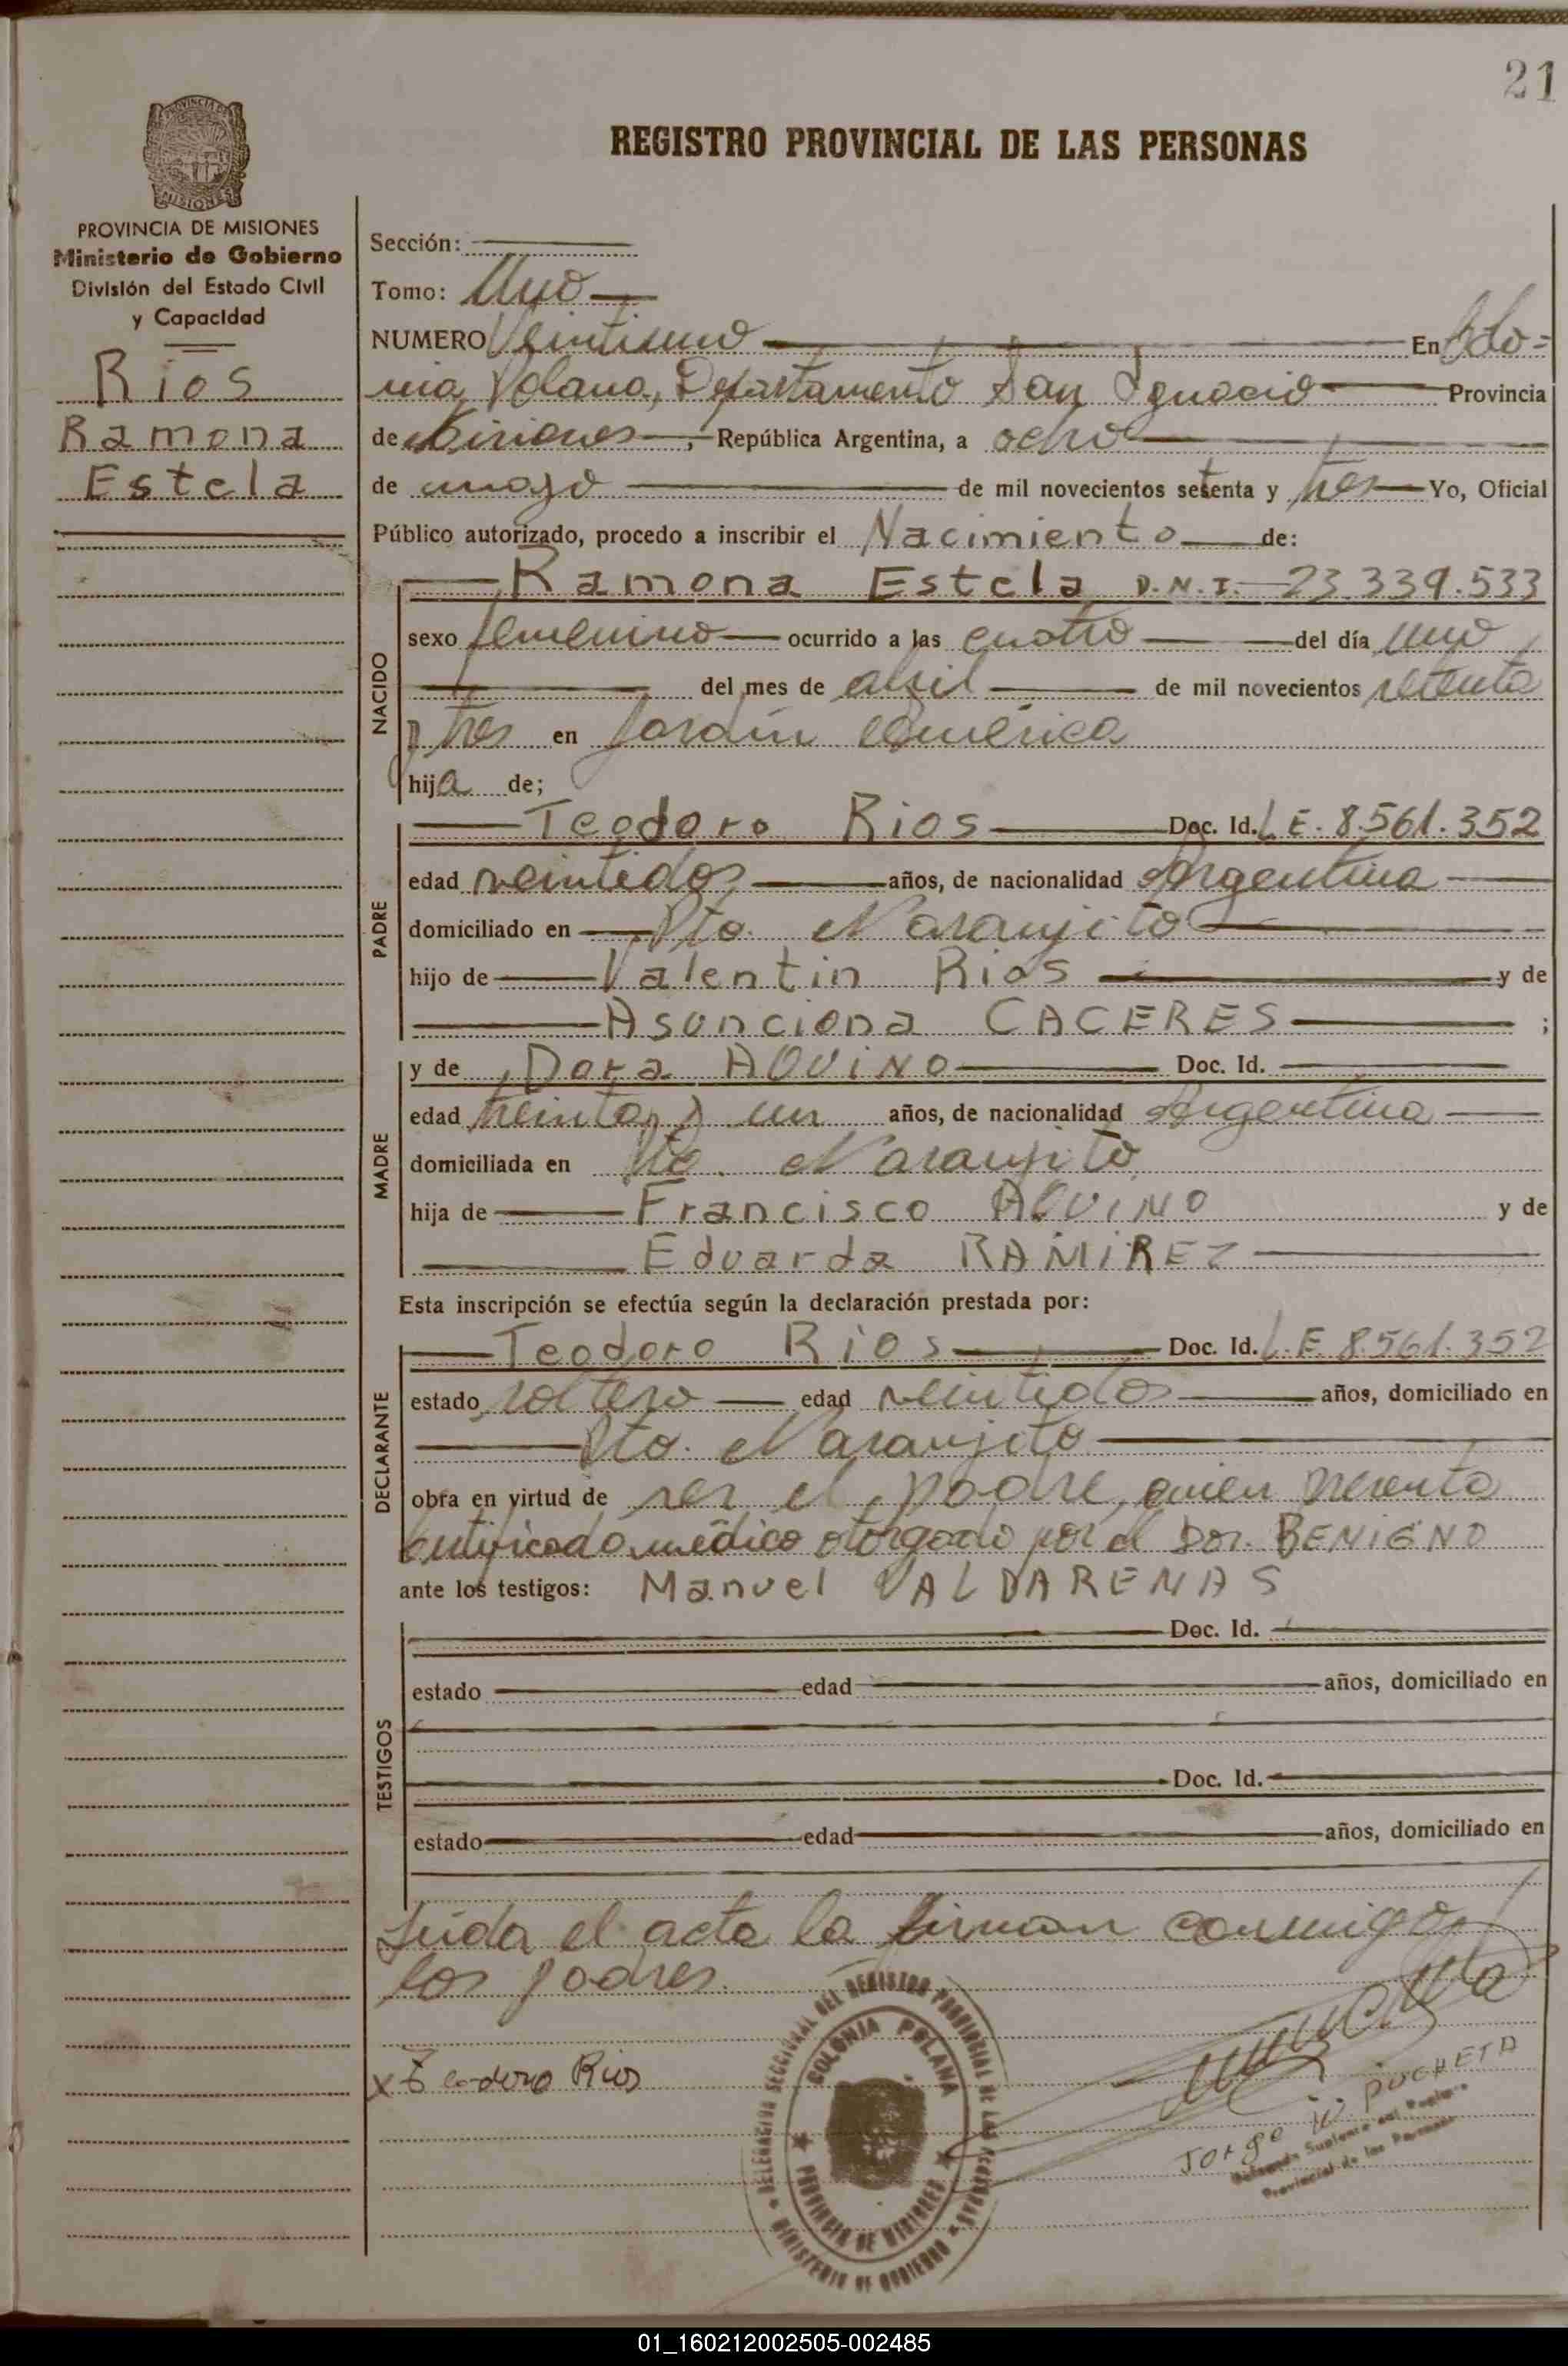 21
REGISTRO PROVINCIAL DE LAS PERSONAS
PROVINCIA DE MISIONES
Ministerio de Gobierno
División del Estado Civil
y Capacidad
Rios
Ramona
Estela
Sección:
Tomo: Uno
NUMERO Veintiuno En Colo=
nia Polana, Departamento San Ignacio Provincia
de Misiones, República Argentina, a ocho
de mayo de mil novecientos setenta y tres Yo, Oficial
Público autorizado, procedo a inscribir el Nacimiento de:
NACIDO
Ramona Estela D.N.I. 23.339.533
sexo femenino ocurrido a las cuatro del día uno
del mes de abril de mil novecientos setenta
y tres en Jardín América
hija de;
PADRE
Teodoro Rios Doc. Id. L.E. 8.561.352
edad veintidos años, de nacionalidad Argentina
domiciliado en Pto. Naranjito
hijo de Valentin Rios y de
Asunciona CACERES ;
MADRE
y de Dora AQUINO Doc. Id.
edad treinta y un años, de nacionalidad Argentina
domiciliada en Pto. Naranjito
hija de Francisco AQUINO y de
Eduarda RAMIREZ
Esta inscripción se efectúa según la declaración prestada por:
DECLARANTE
Teodoro Rios Doc. Id. L.E. 8.561.352
estado soltero edad veintidos años, domiciliado en
Pto. Naranjito
obra en virtud de ser el padre, quien presenta
certificado médico otorgado por el Dor. BENIGNO
ante los testigos: Manuel VALDARENAS
TESTIGOS
Doc. Id.
estado edad años, domiciliado en
Doc. Id.
estado edad años, domiciliado en
Leida el acta la firman conmigo
los padres.
x Teodoro Rios
DELEGACION SECCIONAL DEL REGISTRO PROVINCIAL DE LAS PERSONAS
MINISTERIO DE GOBIERNO
COLONIA POLANA
PROVINCIA DE MISIONES
Jorge W. PUCHETA
Delegado Suplente del Registro
Provincial de las Personas
01_160212002505-002485